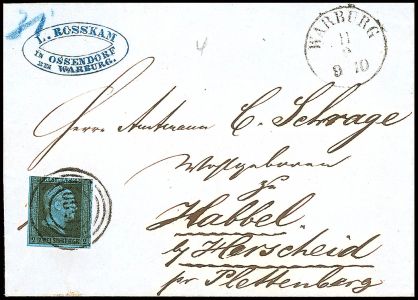 L. ROSSKAM
IN OSSENDORF
BEI WARBURG.
WARBURG
11
9 10
4
Herrn Amtmann C. Schrage
Wohlgeboren
zu
Habbel
by Herscheid
pr Plettenberg
2 ZWEI SILBERGR. 2